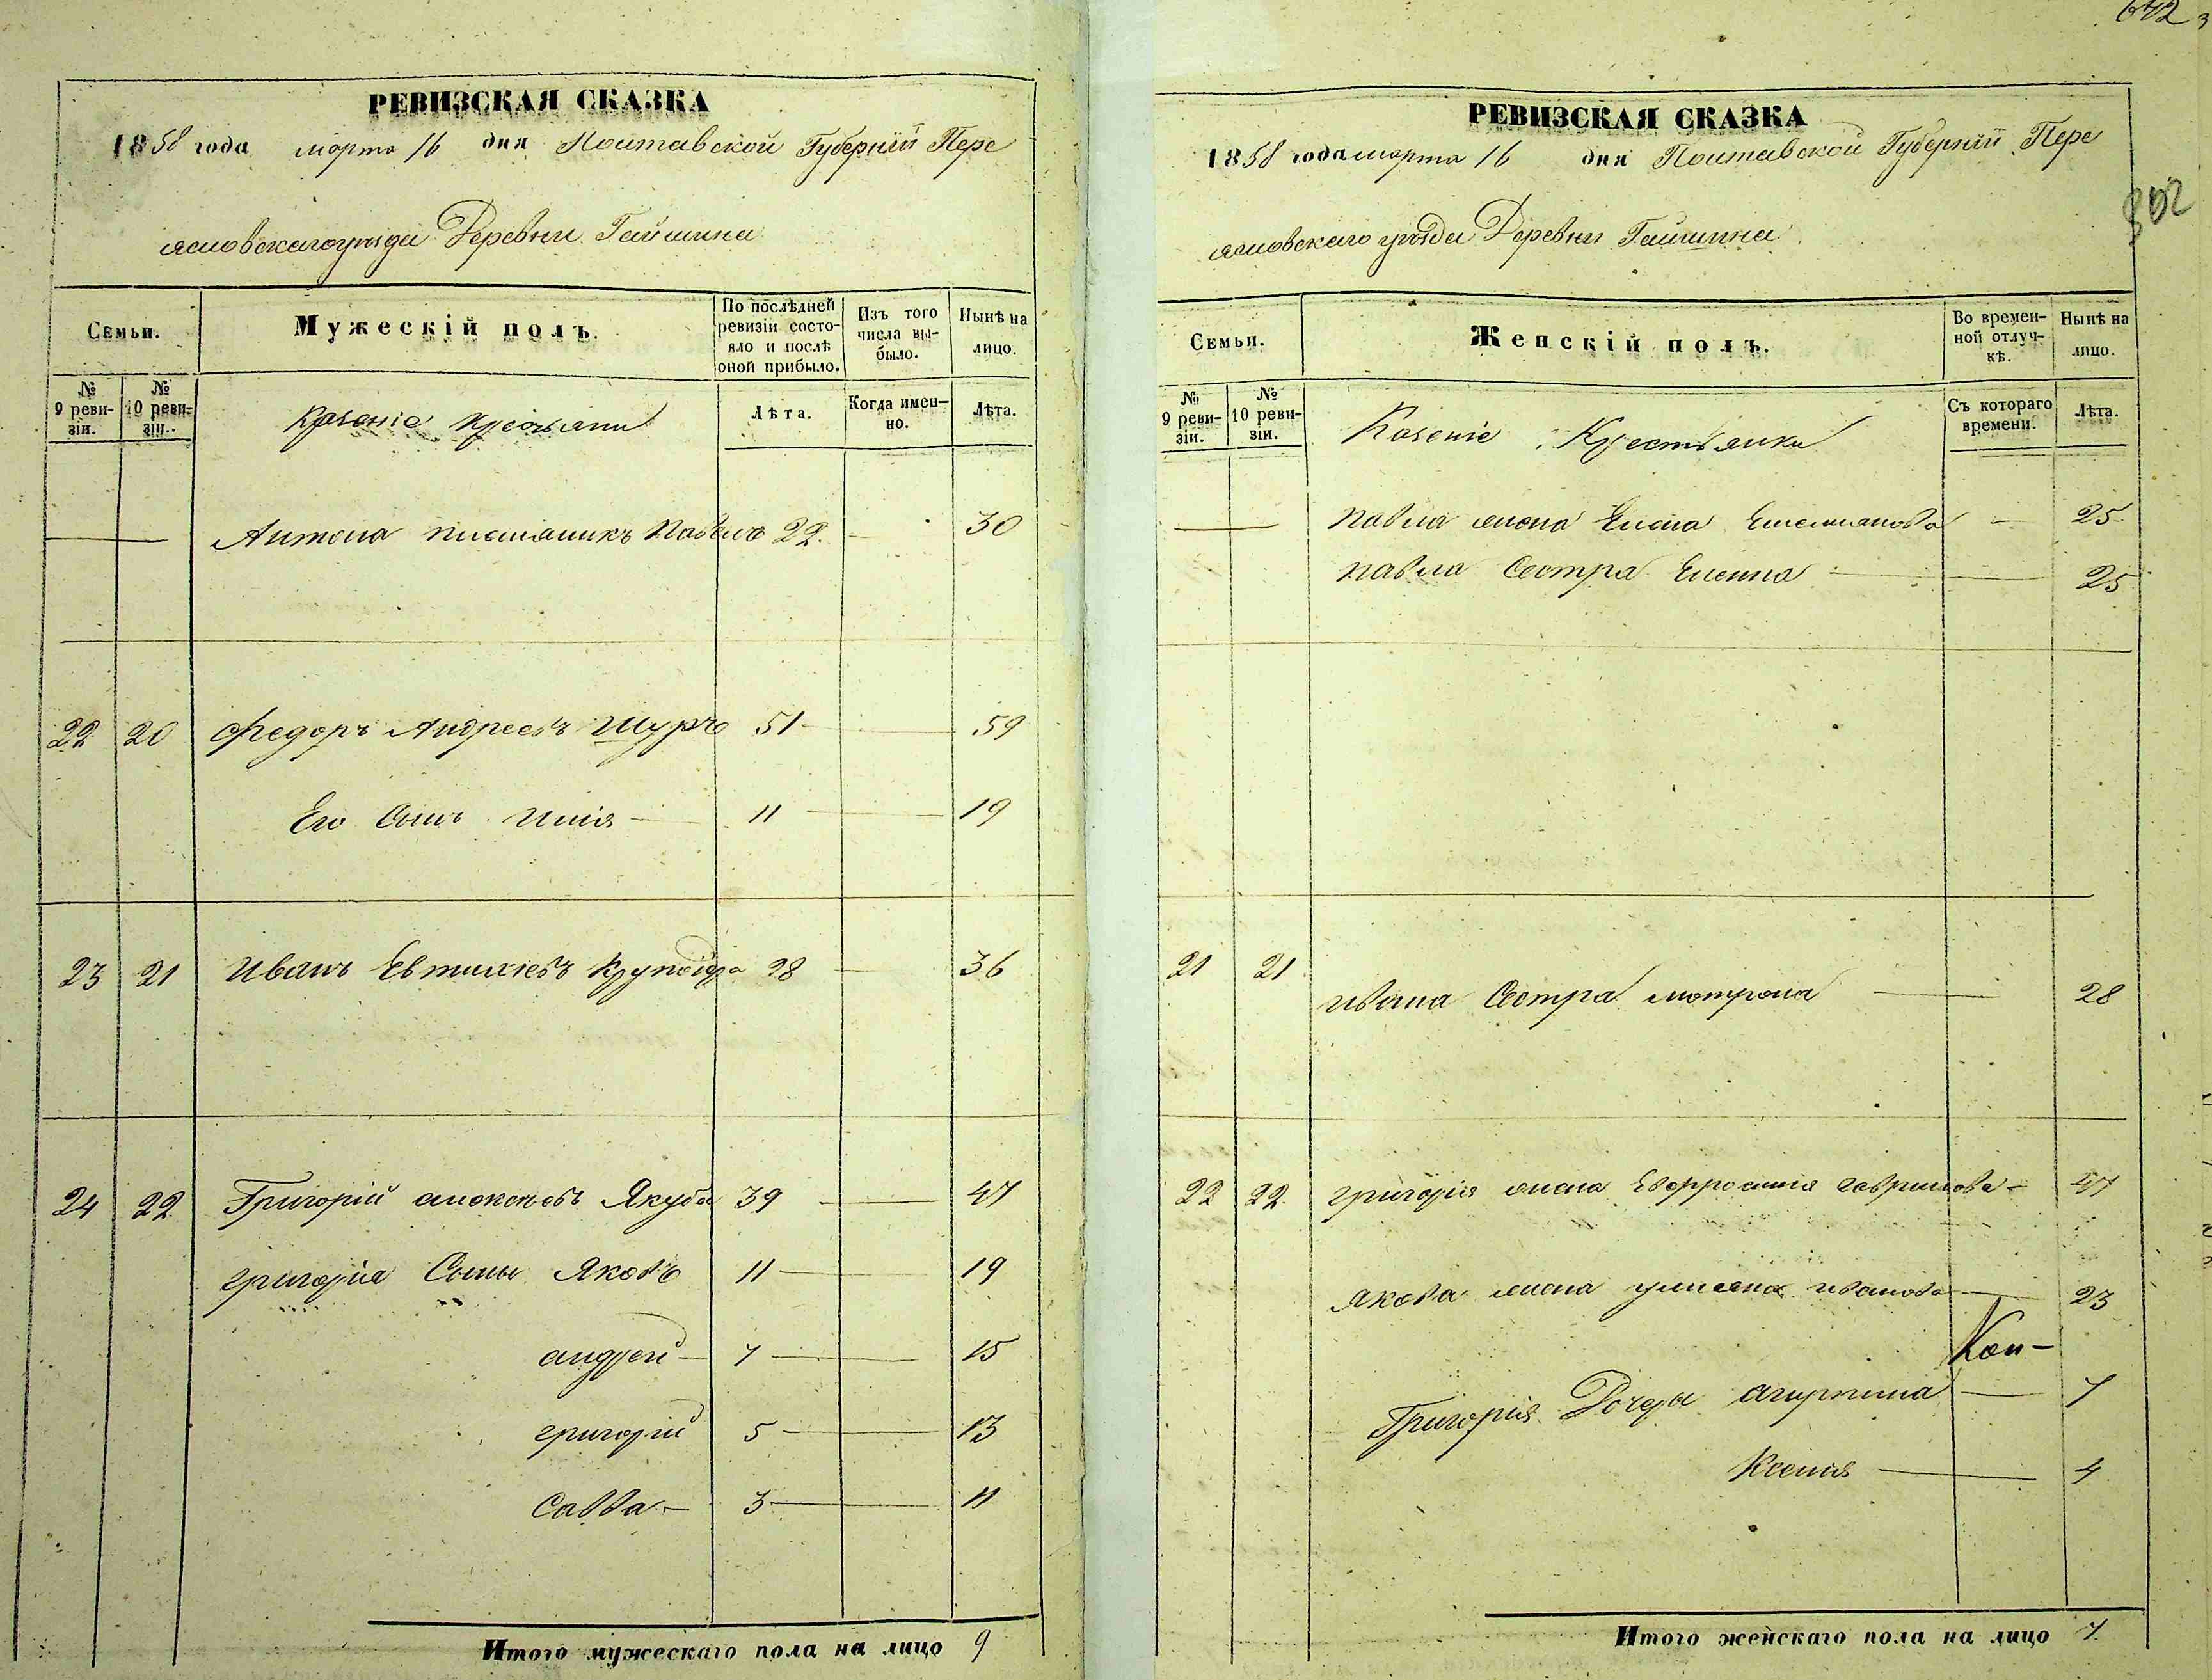 642
РЕВИЗСКАЯ СКАЗКА
1858 года марта 16 дня Полтавской Губернии Пере
яславскаго уѣзда Деревни Гайшина
Семьи.
Мужескій полъ.
По послѣдней ревизіи состояло и послѣ оной прибыло.
Изъ того числа выбыло.
Нынѣ на лицо.
№ 9 ревизіи.
№ 10 ревизіи.
Казеніе Крестьяни
Лѣта.
Когда именно.
Лѣта.
Антона племаникъ Павелъ 22 30
22 20 Федоръ Андреевъ Щуръ 51 59
Его Сынъ Илія 11 19
23 21 Иванъ Евтихіевъ Круподіра 28 36
24 22 Григорій Алексѣевъ Якуба 39 47
Григорія Сыны Яковъ 11 19
андрей 7 15
григорій 5 13
Савва 3 11
Итого мужескаго пола на лицо 9
РЕВИЗСКАЯ СКАЗКА
1858 года марта 16 дня Полтавской Губернии Пере
яславскаго уѣзда Деревни Гайшина
Семьи.
Женскій полъ.
Во временной отлучкѣ.
Нынѣ на лицо.
№ 9 ревизіи.
№ 10 ревизіи.
Казеніе Крестьянки
Съ котораго времени.
Лѣта.
Павла жена Елена Емельянова 25
Павла Сестра Еленна 25
21 21 Ивана Сестра мотрона 28
22 22 григорія жена Евфросинія Гаврилова 47
Якова жена улияна иванова 23
Коп-
Григорія Дочери агирпина 7
Ксенія 4
Итого женскаго пола на лицо 7